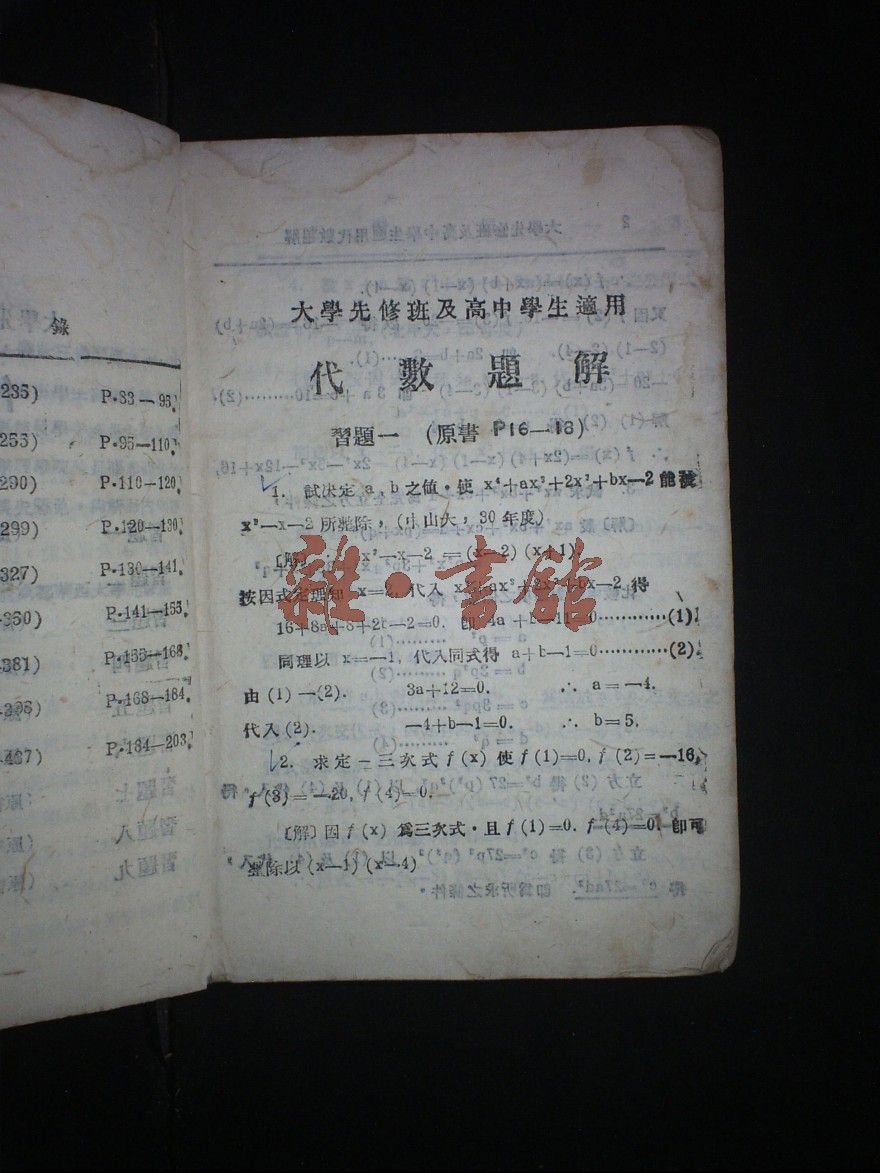 錄
235) P.83—95,
255) P.95—110,
290) P.110—120,
299) P.120—130,
327) P.130—141,
350) P.141—155,
381) P.155—168,
396) P.168—184,
437) P.184—203,
大學先修班及高中學生適用
代數題解
習題一 (原書 P16—18)
1. 試决定 a, b 之値·使 x⁴+ax³+2x²+bx—2 能被
x²—x—2 所整除, (中山大, 30年度)
〔解〕 x²—x—2 =(x—2) (x+1)
按因式定理知 x=2, 代入 x⁴+ax³+2x²+bx—2 得
16+8a+8+2b—2=0. 即 4a+b+11=0…………(1)
同理以 x=—1, 代入同式得 a+b—1=0…………(2)
由 (1)—(2). 3a+12=0. ∴ a=—4.
代入 (2). —4+b—1=0. ∴ b=5.
2. 求定一三次式 f(x) 使 f(1)=0, f(2)=—16,
f(3)=—20, f(4)=0.
〔解〕因 f(x) 爲三次式·且 f(1)=0. f(4)=0 卽可
整除以 (x—1) (x—4)
雜·書館